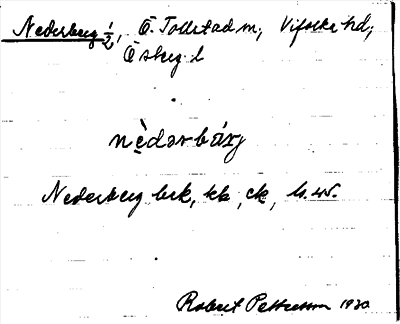 Nederberg 1/2, Ö. Tollstad sn, Vifolka hd,
Österg. l
nèdərbárj
Nederberg
Robert Pettersson 1930